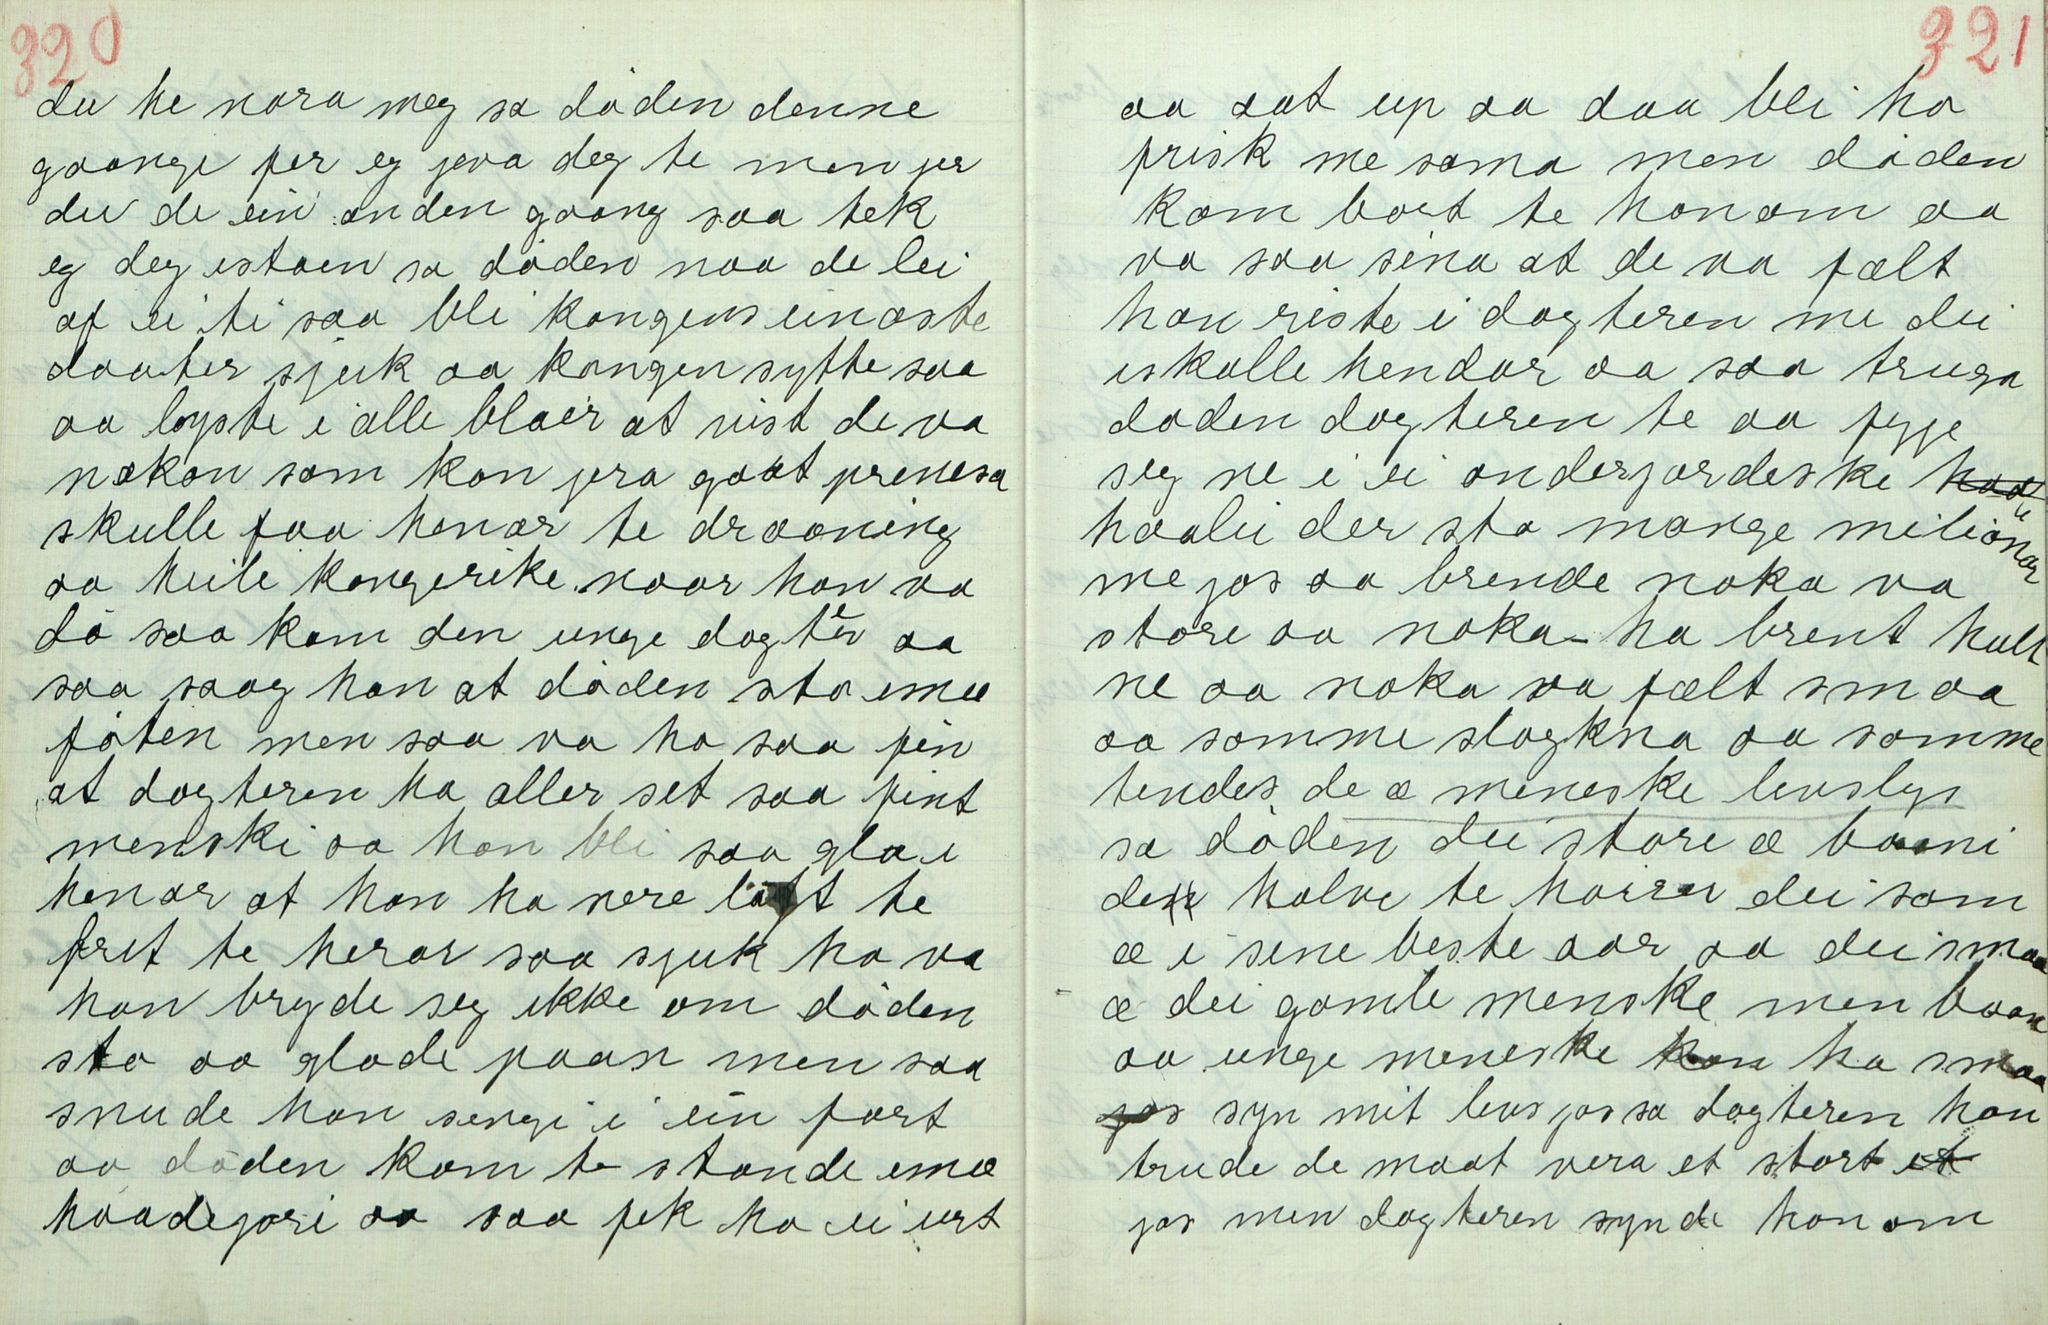 320
du he nara meg sa döden denne
gaange fer eg jeva deg te men jer
du de ein anden gaang saa tek
eg deg istaen sa döden naa de lei
af ei ti saa bli kongens einaste
daater sjuk aa kongen sytte saa
aa loyste i alle blaer at vist de va
nokon som kon jera gaat prinesa
skulle faa henar te draaning
aa heile kongerike naar han va
dö saa kom den unge dagter aa
saa saag han at döden sto imee
föten men saa va ho saa fin
at dagteren ha aller set saa fint
menski aa han bli saa gla i
henar at han ha vere löst te
frit te herar saa sjuk ho va
han bryde seg ikke om döden
sto aa glade paan men saa
snude han sengi i ein fart
aa döden kom te stande imee
haadejori aa saa fek ho ei urt
321
aa sat up aa daa bli ho
frisk me sama men döden
kom bort te honom aa
va saa sina at de va fælt
han riste i dagteren me dei
iskalle hendar aa saa truga
döden dagteren te aa fyjje
seg ne i ei onderjordeske haa
haalei der sto mange milionar
me jos aa brende noka va
store aa noka ha brent halt
ne aa noka va fælt smaa
aa somme slogkna aa somme
tendes de æ meneske livslys
sa döden dei store æ baani
dei halve te hoira dei som
æ i sine beste aar aa dei smaa
æ dei gamle menske men baan
aa unge meneske kan ha smaa
jos syn mit livs jos sa dagteren han
trude de maat vera et stort et
jos men dagteren synde honom